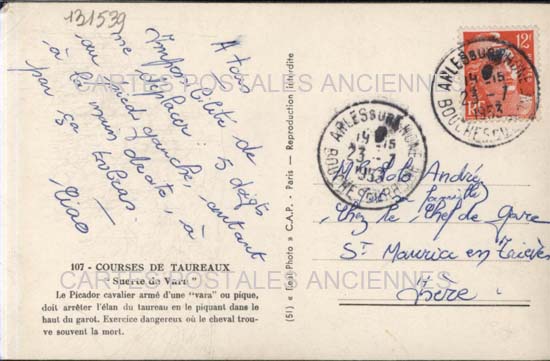 131539
A tous
Impossibilité de
me déplacer 5 doigts
au pied gauche, autant
à la main droite, à
par ça
Ciao
107 - COURSES DE TAUREAUX
"Suerte de Vara"
Le Picador cavalier armé d'une "vara" ou pique,
doit arrêter l'élan du taureau en le piquant dans le
haut du garot. Exercice dangereux où le cheval trou-
ve souvent la mort.
(51) « Real-Photo » C.A.P. - Paris — Reproduction interdite
12F
ARLES SUR RHONE
14 - 15
23 - 7
1953
BOUCHES DU RHONE
ARLES SUR RHONE
14 - 15
23 - 7
1953
BOUCHES DU RHONE
André
& famille
Chez le Chef de Gare
St Maurice en
Isère
CARTES POSTALES ANCIENNES
CARTES POSTALES ANCIENNES